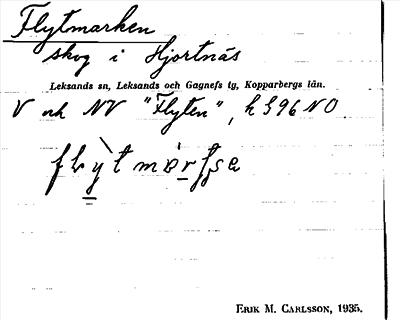 Flytmarken
skog i Hjortnäs
Leksands sn, Leksands och Gagnefs tg, Kopparbergs län.
V och NV "Flyten", h 396 NO
ERIK M. CARLSSON, 1935.